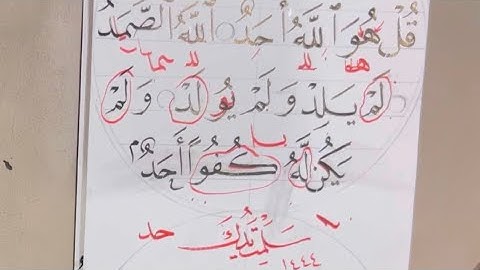 قُلْ هُوَ ٱللَّهُ أَحَدٌ ٱللَّهُ ٱلصَّمَدُ
لَمْ يَلِدْ وَلَمْ يُولَدْ وَلَمْ
يَكُن لَّهُ كُفُوًا أَحَدٌ
سلمت يداك
١٤٤٤